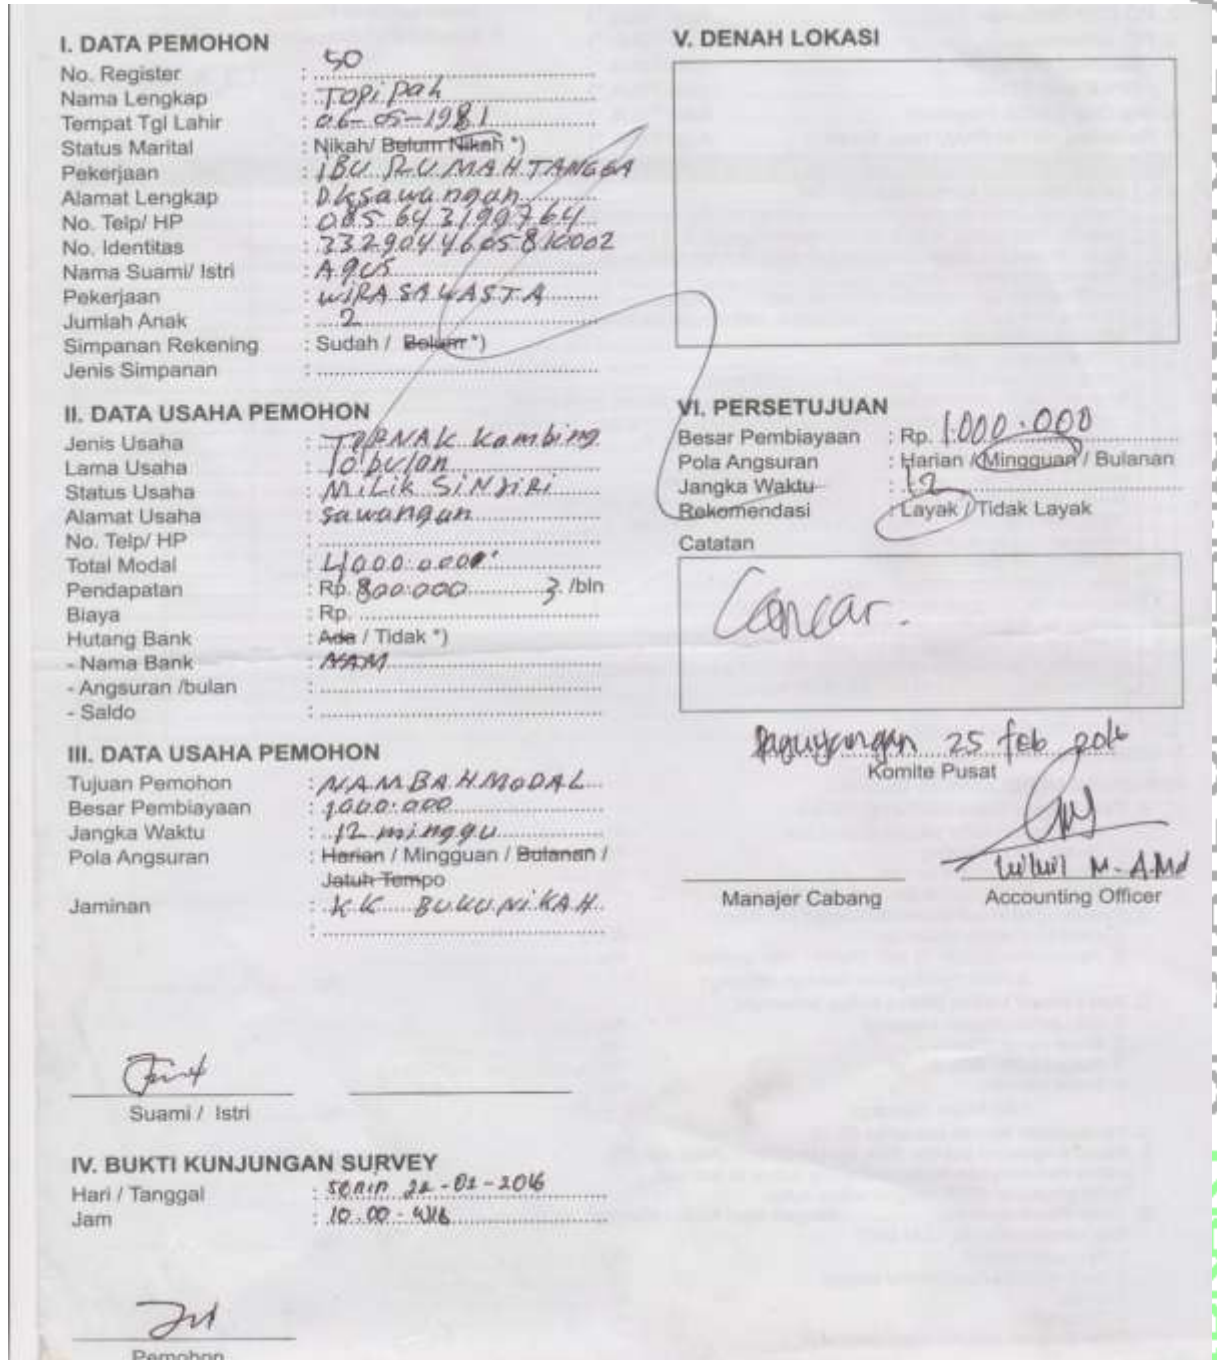 I. DATA PEMOHON
No. Register : 50
Nama Lengkap : Topipah
Tempat Tgl Lahir : 06-05-1981
Status Marital : Nikah/ Belum Nikah *)
Pekerjaan : IBU RUMAH TANGGA
Alamat Lengkap : Dk sawangan
No. Telp/ HP : 085 643199764
No. Identitas : 3329044605810002
Nama Suami/ Istri : Agus
Pekerjaan : WIRASAWASTA
Jumlah Anak : 2
Simpanan Rekening : Sudah / Belum *)
Jenis Simpanan :
II. DATA USAHA PEMOHON
Jenis Usaha : TERNAK Kambing
Lama Usaha : 10 bulan
Status Usaha : MiLik SiNdiRi
Alamat Usaha : sawangan
No. Telp/ HP :
Total Modal : 4000.000
Pendapatan : Rp. 800.000 3 /bln
Biaya : Rp.
Hutang Bank : Ada / Tidak *)
- Nama Bank :
- Angsuran /bulan :
- Saldo :
III. DATA USAHA PEMOHON
Tujuan Pemohon : NAMBAH MODAL
Besar Pembiayaan : 1000.000
Jangka Waktu : 12 minggu
Pola Angsuran : Harian / Mingguan / Bulanan /
Jatuh Tempo
Jaminan : KK BUKU NiKAH
Suami / Istri
IV. BUKTI KUNJUNGAN SURVEY
Hari / Tanggal : Senin 22-02-2016
Jam : 10.00 - WIB
Pemohon
V. DENAH LOKASI
VI. PERSETUJUAN
Besar Pembiayaan : Rp. 1.000.000
Pola Angsuran : Harian / Mingguan / Bulanan
Jangka Waktu : 12
Rekomendasi : Layak / Tidak Layak
Catatan
Lancar.
Paguyangan 25 feb 2016
Komite Pusat
M. A.Md
Manajer Cabang
Accounting Officer